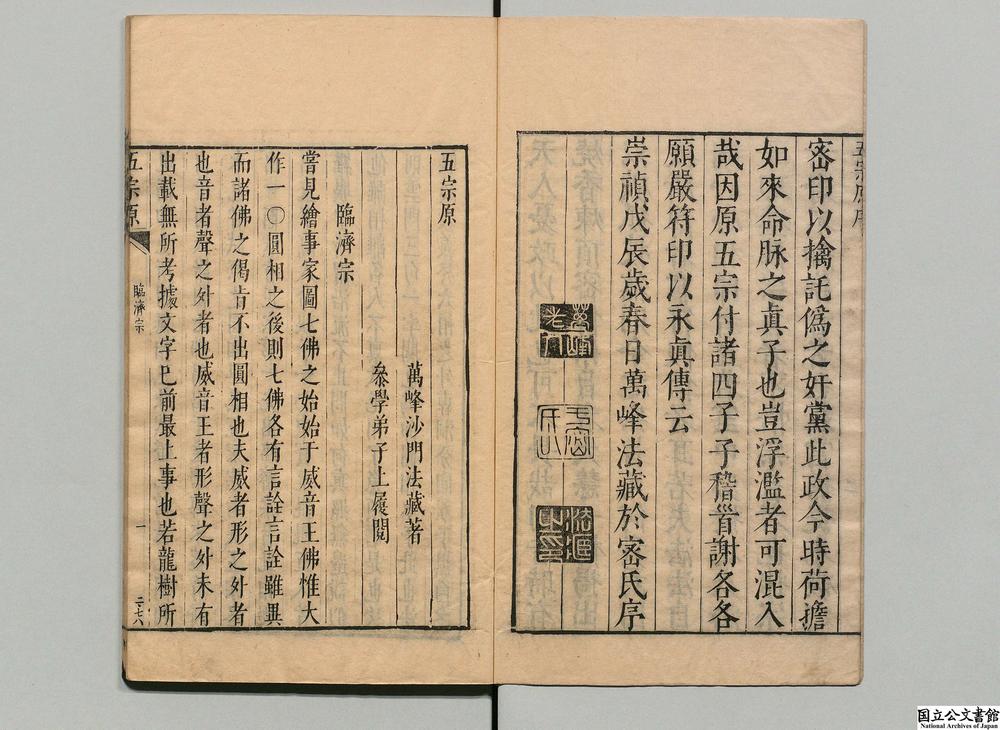 五宗原序
密印以擒託偽之奸黨此政今時荷擔
如來命脉之眞子也豈浮濫者可混入
哉因原五宗付諸四子子稽首謝各各
願嚴符印以永眞傳云
崇禎戊辰歲春日萬峰法藏於密氏序
萬峰
五宗原
萬峰沙門法藏著
叅學弟子上履閱
臨濟宗
嘗見繪事家圖七佛之始始于威音王佛惟大
作一〇圓相之後則七佛各有言詮言詮雖異
而諸佛之偈旨不出圓相也夫威者形之外者
也音者聲之外者也威音王者形聲之外未有
出載無所考據文字已前最上事也若龍樹所
五宗原
臨濟宗
一
二七六
国立公文書館
National Archives of Japan